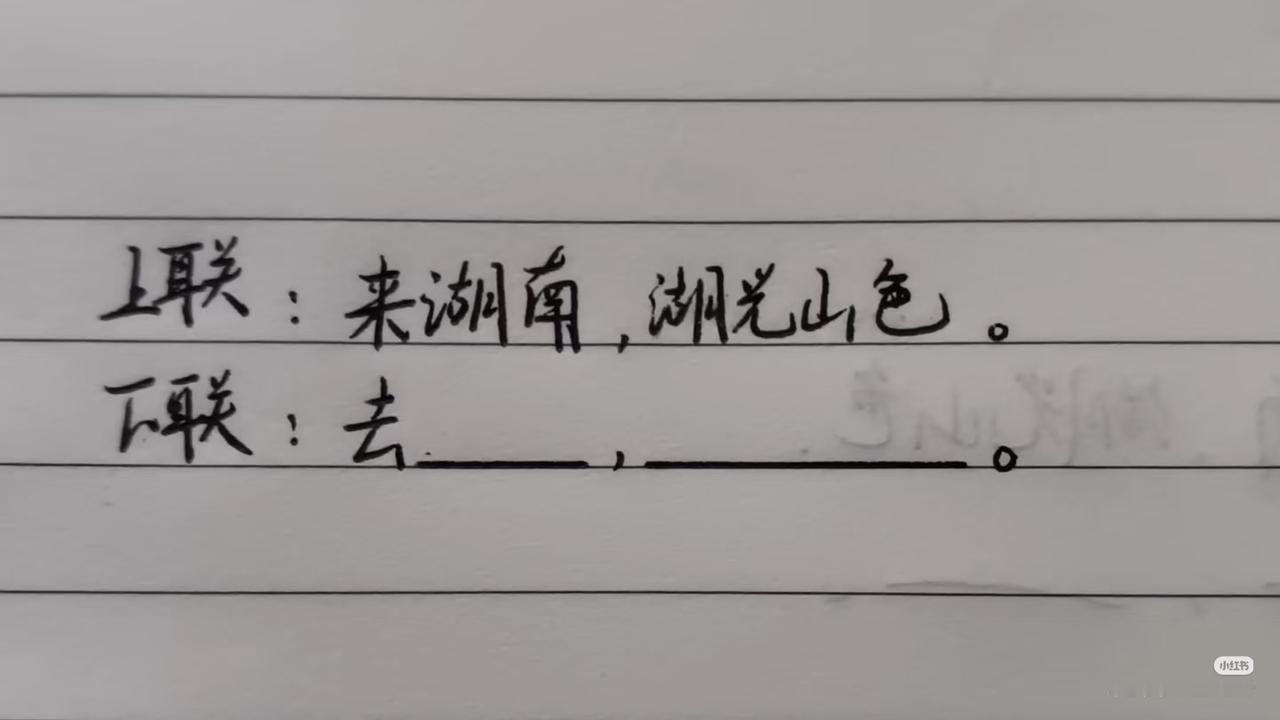 上联：来湖南，湖光山色。
下联：去____，________。
小红书